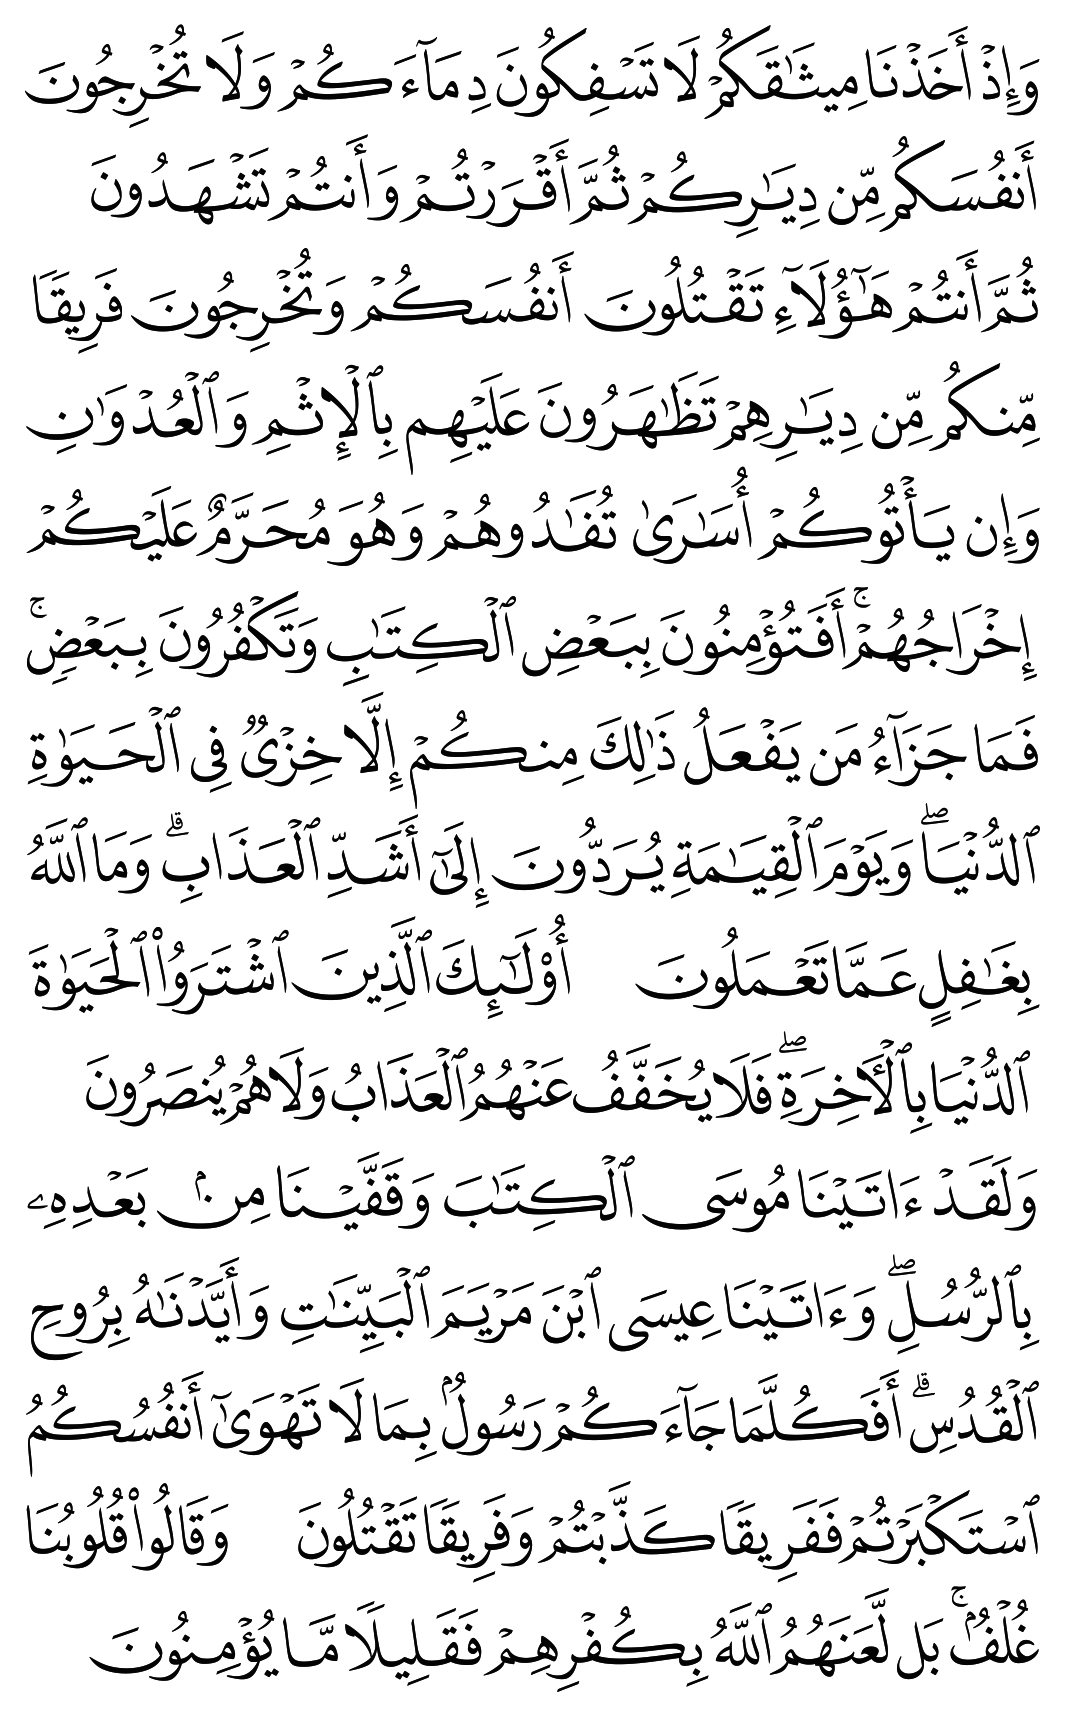 وَإِذۡ أَخَذۡنَا مِيثَٰقَكُمۡ لَا تَسۡفِكُونَ دِمَآءَكُمۡ وَلَا تُخۡرِجُونَ
أَنفُسَكُم مِّن دِيَٰرِكُمۡ ثُمَّ أَقۡرَرۡتُمۡ وَأَنتُمۡ تَشۡهَدُونَ
ثُمَّ أَنتُمۡ هَٰٓؤُلَآءِ تَقۡتُلُونَ أَنفُسَكُمۡ وَتُخۡرِجُونَ فَرِيقٗا
مِّنكُم مِّن دِيَٰرِهِمۡ تَظَٰهَرُونَ عَلَيۡهِم بِٱلۡإِثۡمِ وَٱلۡعُدۡوَٰنِ
وَإِن يَأۡتُوكُمۡ أُسَٰرَىٰ تُفَٰدُوهُمۡ وَهُوَ مُحَرَّمٌ عَلَيۡكُمۡ
إِخۡرَاجُهُمۡۚ أَفَتُؤۡمِنُونَ بِبَعۡضِ ٱلۡكِتَٰبِ وَتَكۡفُرُونَ بِبَعۡضٖۚ
فَمَا جَزَآءُ مَن يَفۡعَلُ ذَٰلِكَ مِنكُمۡ إِلَّا خِزۡيٞ فِي ٱلۡحَيَوٰةِ
ٱلدُّنۡيَاۖ وَيَوۡمَ ٱلۡقِيَٰمَةِ يُرَدُّونَ إِلَىٰٓ أَشَدِّ ٱلۡعَذَابِۗ وَمَا ٱللَّهُ
بِغَٰفِلٍ عَمَّا تَعۡمَلُونَ أُوْلَٰٓئِكَ ٱلَّذِينَ ٱشۡتَرَوُاْ ٱلۡحَيَوٰةَ
ٱلدُّنۡيَا بِٱلۡأٓخِرَةِۖ فَلَا يُخَفَّفُ عَنۡهُمُ ٱلۡعَذَابُ وَلَا هُمۡ يُنصَرُونَ
وَلَقَدۡ ءَاتَيۡنَا مُوسَى ٱلۡكِتَٰبَ وَقَفَّيۡنَا مِنۢ بَعۡدِهِۦ
بِٱلرُّسُلِۖ وَءَاتَيۡنَا عِيسَى ٱبۡنَ مَرۡيَمَ ٱلۡبَيِّنَٰتِ وَأَيَّدۡنَٰهُ بِرُوحِ
ٱلۡقُدُسِۗ أَفَكُلَّمَا جَآءَكُمۡ رَسُولُۢ بِمَا لَا تَهۡوَىٰٓ أَنفُسُكُمُ
ٱسۡتَكۡبَرۡتُمۡ فَفَرِيقٗا كَذَّبۡتُمۡ وَفَرِيقٗا تَقۡتُلُونَ وَقَالُواْ قُلُوبُنَا
غُلۡفُۢۚ بَل لَّعَنَهُمُ ٱللَّهُ بِكُفۡرِهِمۡ فَقَلِيلٗا مَّا يُؤۡمِنُونَ